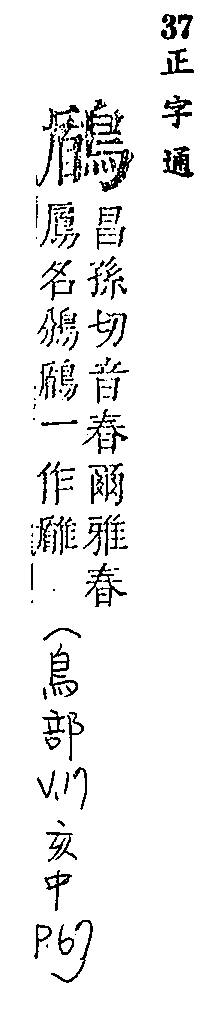 37正字通
昌孫切音春爾雅春
鳸名鳻一作
(鳥部 V.17 亥中 P.67)